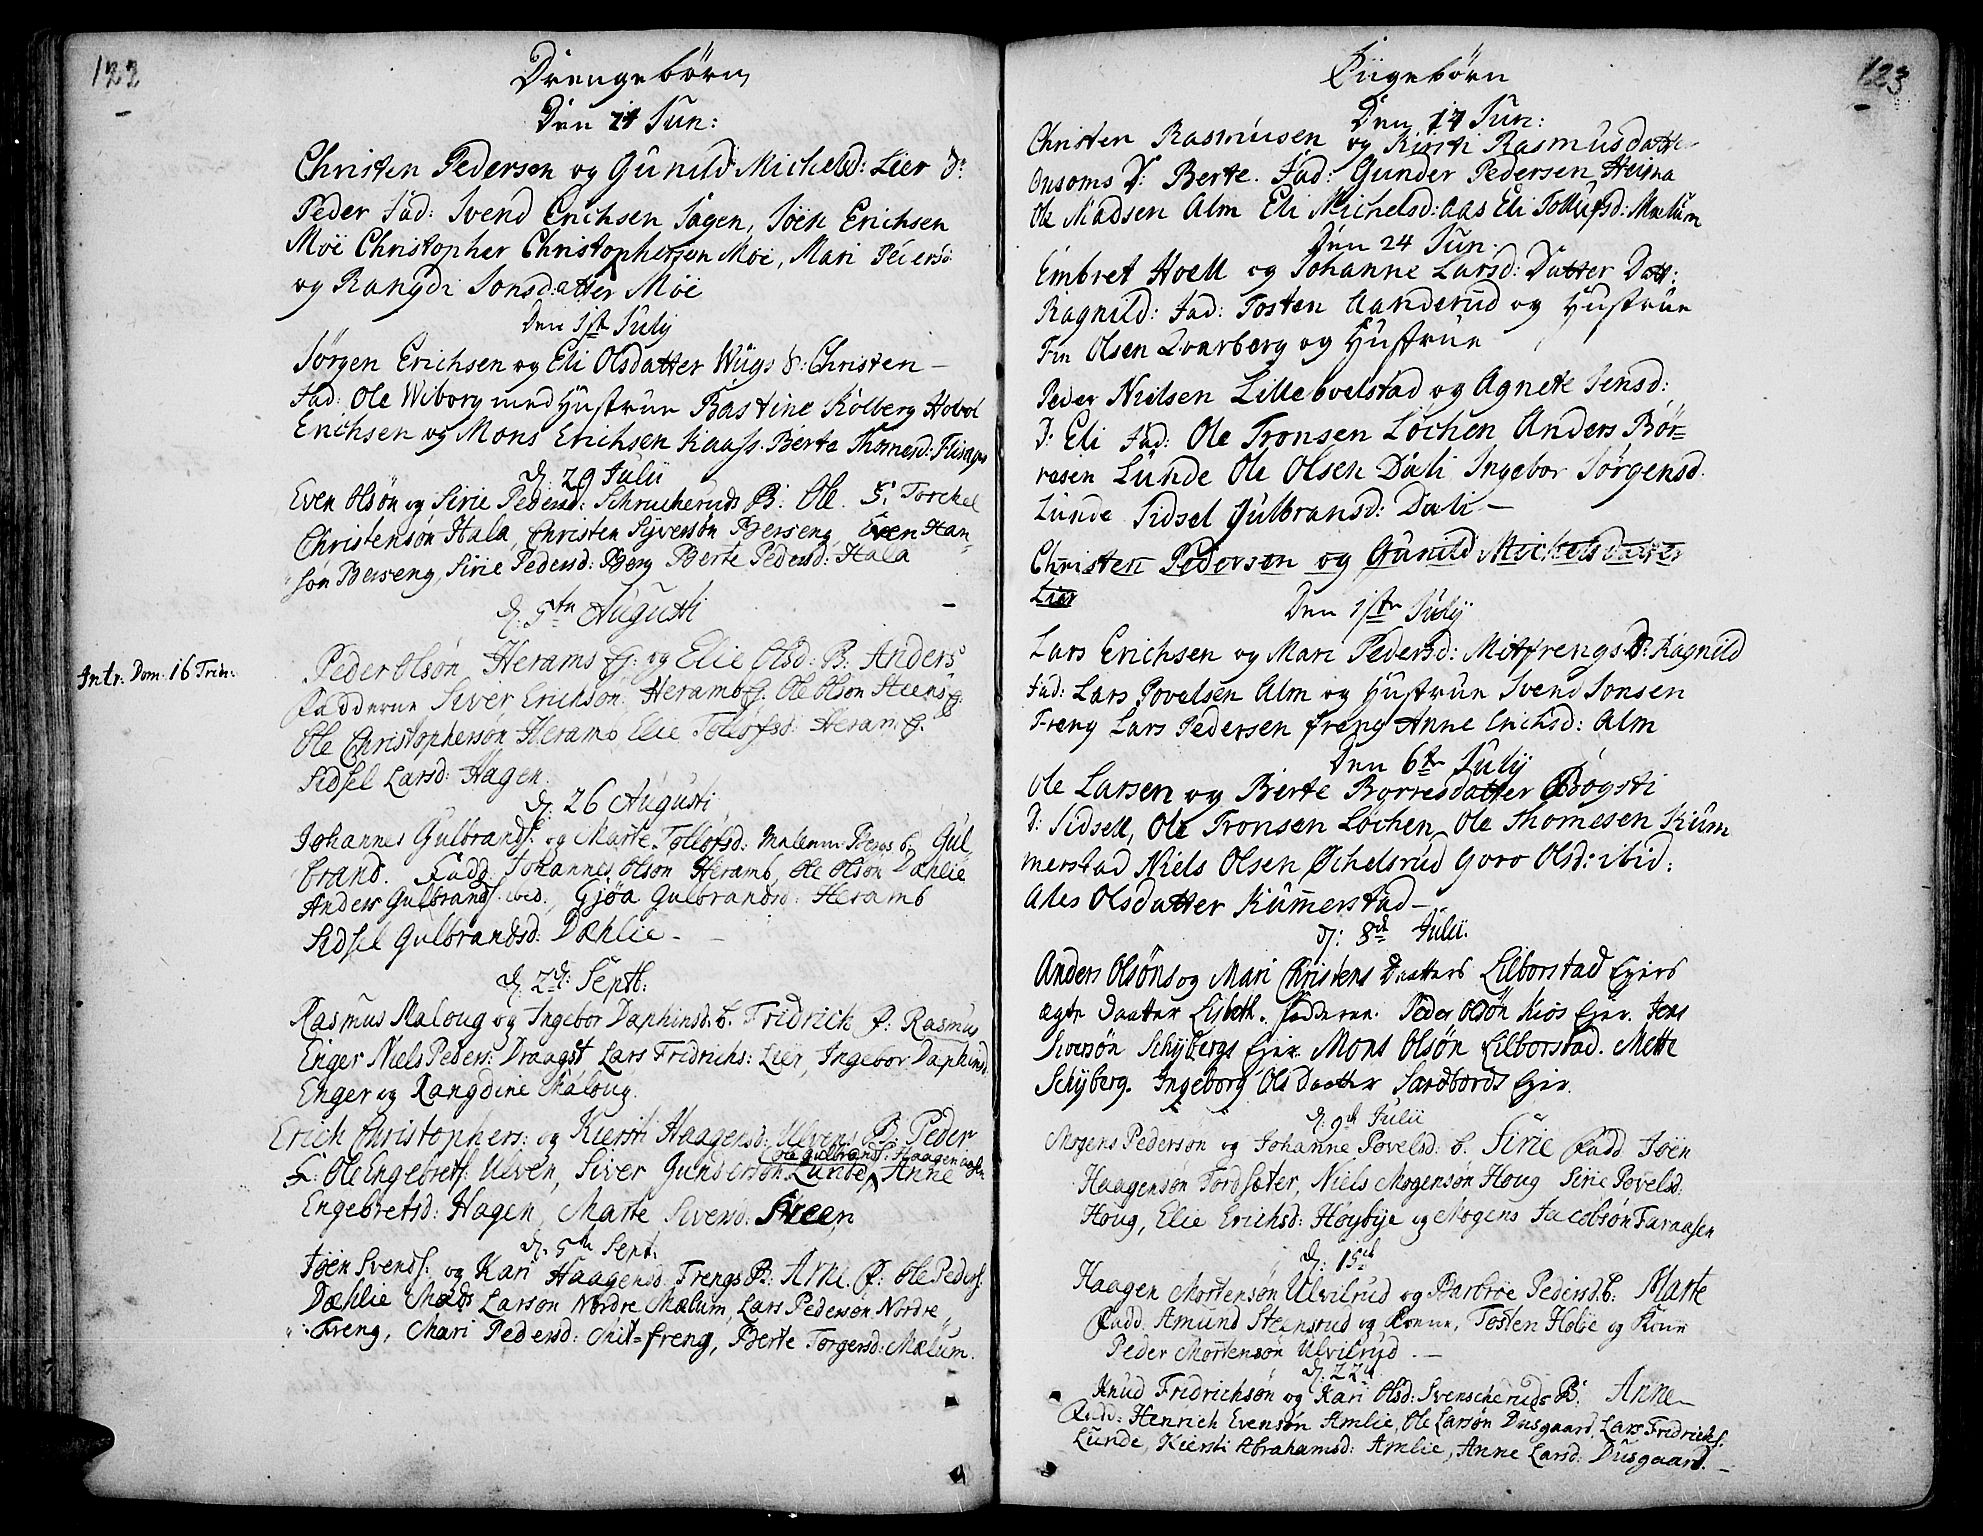 122
Drengebörn
Den 24 Jun:
Christen Pedersen og Gunild Michelsd: Lier D:
Peder Fad: Svend Erichsen Sagen, Joen Erichsen
Moe Christopher Christophersen Moe, Mari Pedersd
og Rangdi Jonsdatter Moe
Den 1ste July
Jörgen Erichsen og Eli Olsdatter Wügs S: Christen –
Fad: Ole Wiborg med Hustrue Bastine Kolberg Hobol
Erichsen og Mons Erichsen Kaass. Berte Thomesd:
d: 29 Julii
Even Olsön og Sirie Pedersd: B: Ole. F: Torchel
Christensön Hala, Christen Syversön Berseng Even Han-
sön Berseng, Sirie Pedersd: Berg Berte Pedersd: Hala
d: 5te Augusti
Peder Olsön Herams Ej: og Elie Olsd: B: Anders
Intr: Dom: 16 Trin:
Fadderne Siver Erichson Heramb Ej. Ole Olson Steens Ej.
Ole Christophersön Heramb Elie Tollofsd: Heram Ej.
Sidsel Larsd: Hagen.
d: 26 Augusti
Johannes Gulbrands. og Marte Tollofsd: b. Gul
brand. Fadd. Johannes Olson Heramb, Ole Olsön Dæhlie
Anders Gulbrands. ibid., Gjöa Gulbrandsd. Heramb
Sidsel Gulbrandsd: Dæhlie –
d. 2d: Septb:
Rasmus Maloug og Ingebor Daphinsd. b. Fridrich f: Rasmus
Enger Niels Peders: Draagst Lars Fridrichs: Lier, Ingebor Daphinsd.
Enger og Rangdine Maloug.
Erich Christophers: og Kiersti Haagensd: Ulvens B: Peder
Ole Gulbrands: Haagenaasen
F: Ole Engebrets: Ulven, Siver Gunderson Lunde, Anne
Engebretsd: Hagen, Marte Siversd: Steen
d. 5te Sept.
Joen Svends: og Kari Haagensd. Frengs B: Arne. F: Ole Peders.
Dæhlie Mads Larson Nordre Mælum, Lars Pedersen Nordre
Freng, Mari Pedersd: Mit-freng, Berte Torgersd: Mælum.
123
Piigebörn
Den 17 Jun:
Christen Rasmusen og Kirsti Rasmusdatter
Onsoms D: Berte. Fad: Gunder Pedersen Heisna
Ole Madsen Alm Eli Michelsd: Aas Eli Tollufsd: Mælum
Den 24 Jun:
Embret Hoell og Johanne Larsd: Datter Datt:
Ragnild: Fad: Tosten Aanderud og Hustrue
Fin Olsen Qvarberg og Hustrue
Peder Nielsen Lilleboelstad og Agnete Jensd:
D: Eli Fad: Ole Tronsen Lochen Anders Bör-
resen Lunde Ole Olsen Dali Ingebor Jörgensd.
Lunde Sidsel Gulbransd: Dali –
Christen Pedersen og Gunild Michelsdatter
Lier
Den 1ste July
Lars Erichsen og Mari Pedersd: Mitfrengs D: Ragnild
Fad: Lars Povelsen Alm og Hustrue Svend Jonsen
Freng Lars Pedersen freng Anne Erichsd: Alm
Den 6te July
Ole Larsen og Berte Borresdatter Brogsti
D: Sidsell, Ole Tronsen Lochen Ole Thomesen Kum
merstad Niels Olsen Öchelsrud Goro Olsd: ibid:
Ales Olsdatter Kummerstad –
d: 8de Julii.
Anders Olsöns og Mari Christens Daatters Lilborstad Ejers
ægte Daatter Lisbeth. Fadderne. Peder Olsön Kios Ejer. Jens
Siversön Schybergs Ejer. Mons Olsön Lilborstad. Mette
Schyberg. Ingeborg Ols Daatter Sandbords Ejer.
d: 9de Julii
Mogens Pederson og Johanne Povelsd: b. Sirie Fadd. Joen
Haagensön Tordsæter, Niels Mogensön Houg Sirie Povelsd:
Houg, Elie Erichsd: Hoybye og Mogens Jacobson Faraasen
d: 15de
Haagen Mortensön Ulvilrud og Barbroe Pedersd: b: Marte
Fadd. Amund Steensrud og Kone, Tosten Holie og Kone
Peder Mortensön Ulvilrud. –
d: 22d
Knud Fridrichsön og Kari Olsd: Svenscheruds B: Anne
Fadd: Henrich Evensön Amlie, Ole Larsön Dusgaard, Lars Fridrichs:
Lunde, Kiersti Abrahamsd: Amlie, Anne Larsd: Dusgaard. –